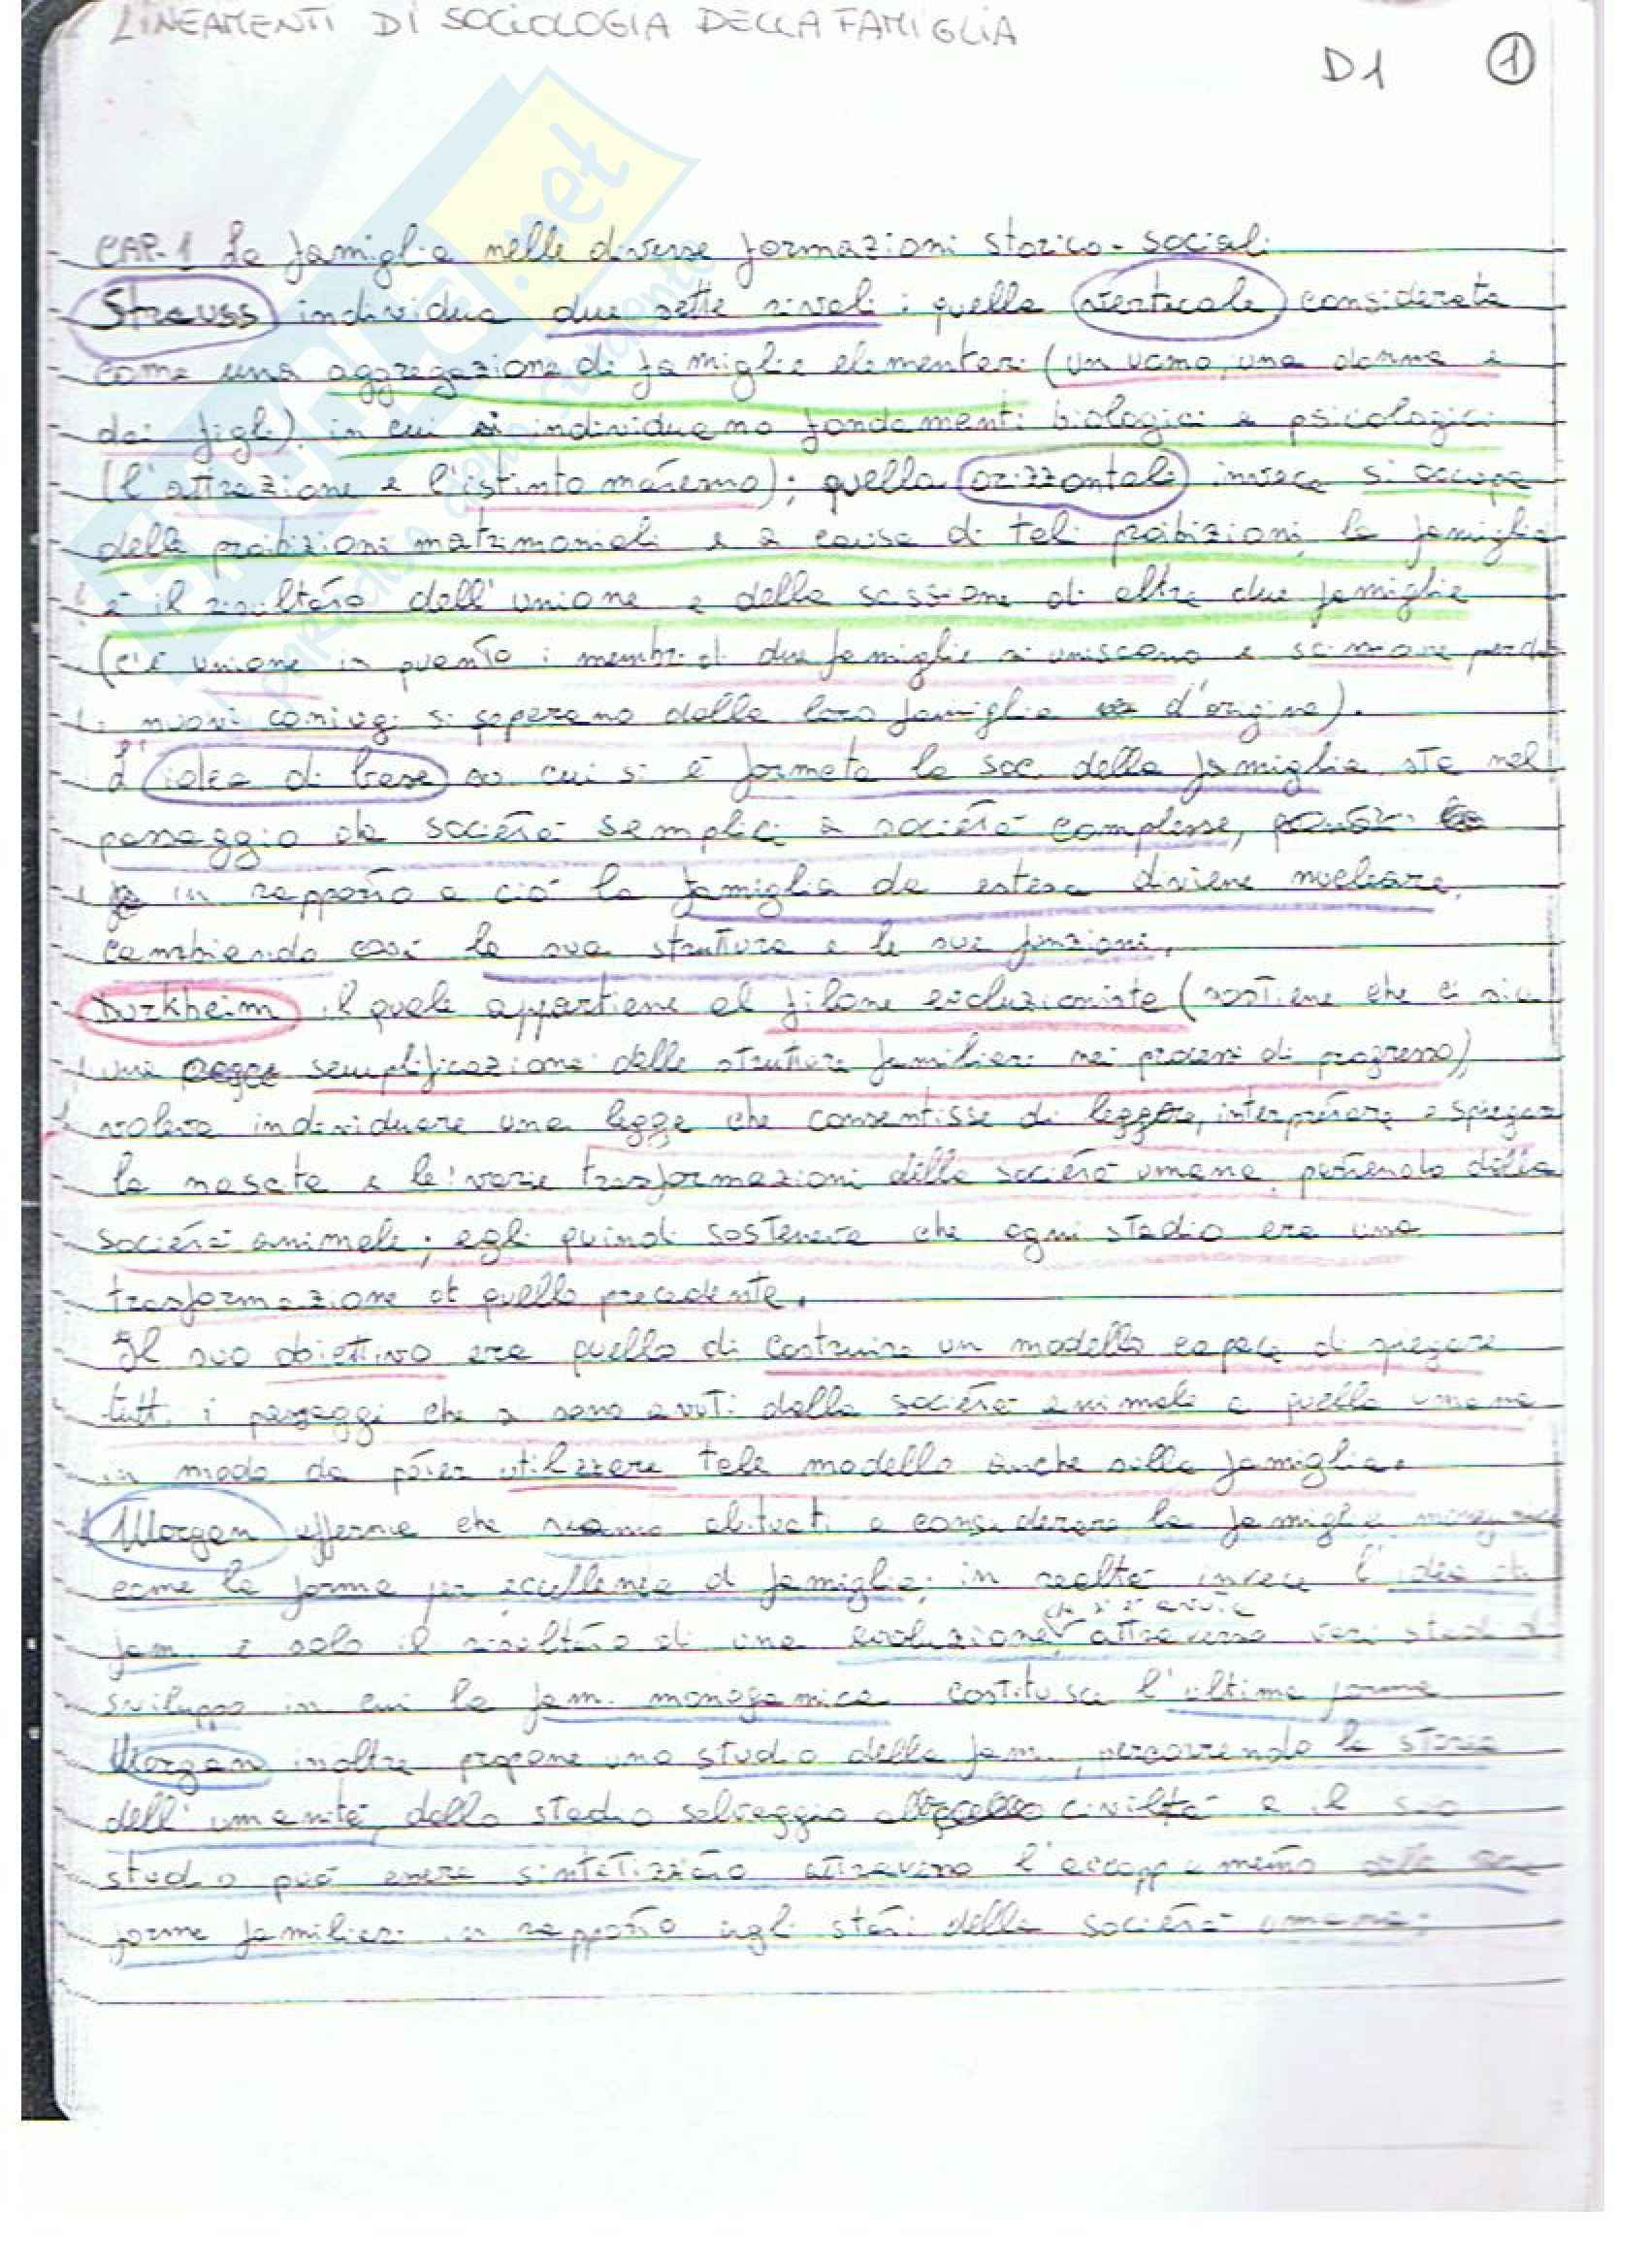 LINEAMENTI DI SOCIOLOGIA DELLA FAMIGLIA
D1 1
CAP. 1 La famiglia nelle diverse formazioni storico-sociali
Strauss individua due sette rivali: quella verticale considerata
come una aggregazione di famiglie elementari (un uomo, una donna e
dei figli), in cui si individuano fondamenti biologici e psicologici
(l'attrazione e l'istinto materno); quella orizzontale invece si occupa
delle proibizioni matrimoniali e a causa di tali proibizioni, la famiglia
è il risultato dell'unione e della scissione di altre due famiglie
(c'è unione in quanto i membri di due famiglie si uniscono e scissione perchè
i nuovi coniugi si separano dalla loro famiglia d'origine).
L'idea di base su cui si è formata la soc. della famiglia sta nel
passaggio da società semplici a società complesse,
in rapporto a ciò la famiglia da estesa diviene nucleare,
cambiando così la sua struttura e le sue funzioni.
Durkheim il quale appartiene al filone evoluzionista (sostiene che ci sia
una semplificazione delle strutture familiari nei processi di progresso),
voleva individuare una legge che consentisse di leggere, interpretare e spiegare
la nascita e le varie trasformazioni della società umana partendo dalla
società animale; egli quindi sosteneva che ogni stadio era una
trasformazione di quello precedente.
Il suo obiettivo era quello di costruire un modello capace di spiegare
tutti i passaggi che si sono avuti dalla società animale a quella umana
in modo da poter utilizzare tale modello anche sulla famiglia.
Morgan afferma che siamo abituati a considerare la famiglia monogamica
come la forma per eccellenza di famiglia; in realtà invece l'idea di
fam. è solo il risultato di una evoluzione che si è avuta attraverso vari stadi di
sviluppo in cui la fam. monogamica costituisce l'ultima forma
Morgan inoltre propone uno studio della fam. percorrendo la storia
dell'umanità, dallo stadio selvaggio alla civiltà e il suo
studio può essere sintetizzato attraverso l'accoppiamento delle
forme familiari in rapporto agli stati della società umana:
SKUOLA.net